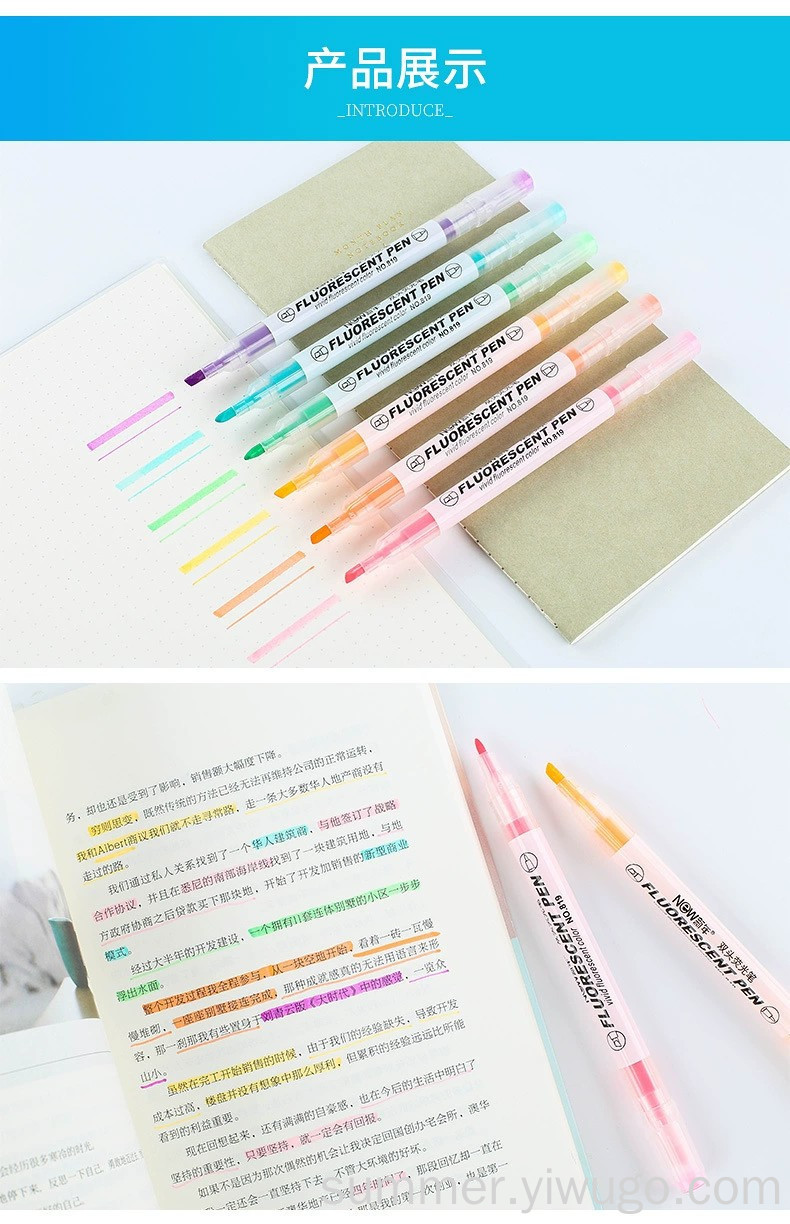 产品展示
_INTRODUCE_
FLUORESCENT PEN
vivid fluorescent color NO.819
FLUORESCENT PEN
vivid fluorescent color NO.819
FLUORESCENT PEN
vivid fluorescent color NO.819
FLUORESCENT PEN
vivid fluorescent color NO.819
FLUORESCENT PEN
vivid fluorescent color NO.819
FLUORESCENT PEN
vivid fluorescent color NO.819
务，却也还是受到了影响，销售额大幅度下降。
穷则思变，既然传统的方法已经无法再维持公司的正常运转，
我和Albert商议我们就不走寻常路，走一条大多数华人地产商没有
走过的路。
我们通过私人关系找到了一个华人建筑商，与他签订了战略
合作协议，并且在悉尼的南部海岸线找到了一块建筑用地，与地
方政府协商之后贷款买下那块地，开始了开发加销售的新型商业
模式。
经过大半年的开发建设，一个拥有11套连体别墅的小区一步步
浮出水面。
整个开发过程我全程参与，从一块空地开始，看着一砖一瓦慢
慢堆砌，一座座别墅接连完成，那种成就感真的无法用语言来形
容，那一刹那我有些置身于刘青云版《大时代》中的感觉，一览众
山小。
虽然在完工开始销售的时候，由于我们的经验缺失，导致开发
成本过高，楼盘并没有想象中那么厚利，但累积的经验远远比所能
看到的利益重要。
现在回想起来，还有满满的自豪感，也在今后的生活中明白了
坚持的重要性，只要坚持，就一定会有回报。
如果不是因为那次偶然的机会让我决定回国创办宅会所，澳华
一定还会一直坚持下去，不管大环境的好坏。
FLUORESCENT PEN
vivid fluorescent color NO.819
双头荧光笔
FLUORESCENT PEN
vivid fluorescent color
summer.yiwugo.com